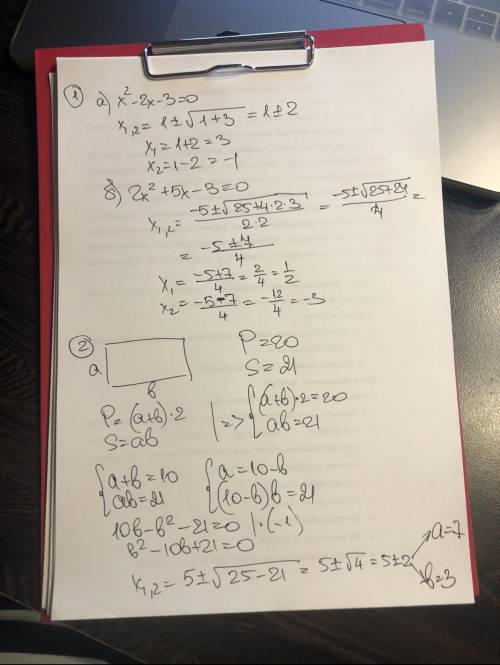 1
а) x²-2x-3=0
x₁,₂= 1±√1+3 = 1±2
x₁=1+2=3
x₂=1-2=-1
б) 2x²+5x-3=0
x₁,₂= -5±√25+4·2·3 / 2·2 = -5±√25+24 / 4 =
= -5±7 / 4
x₁= -5+7 / 4 = 2/4 = 1/2
x₂= -5-7 / 4 = -12/4 = -3
2
P=20
a
S=21
b
P=(a+b)·2 | => { (a+b)·2=20
S=ab ab=21
{ a+b=10 { a=10-b
ab=21 (10-b)b=21
10b-b²-21=0 |·(-1)
b²-10b+21=0
x₁,₂= 5±√25-21 = 5±√4 = 5±2
a=7
b=3